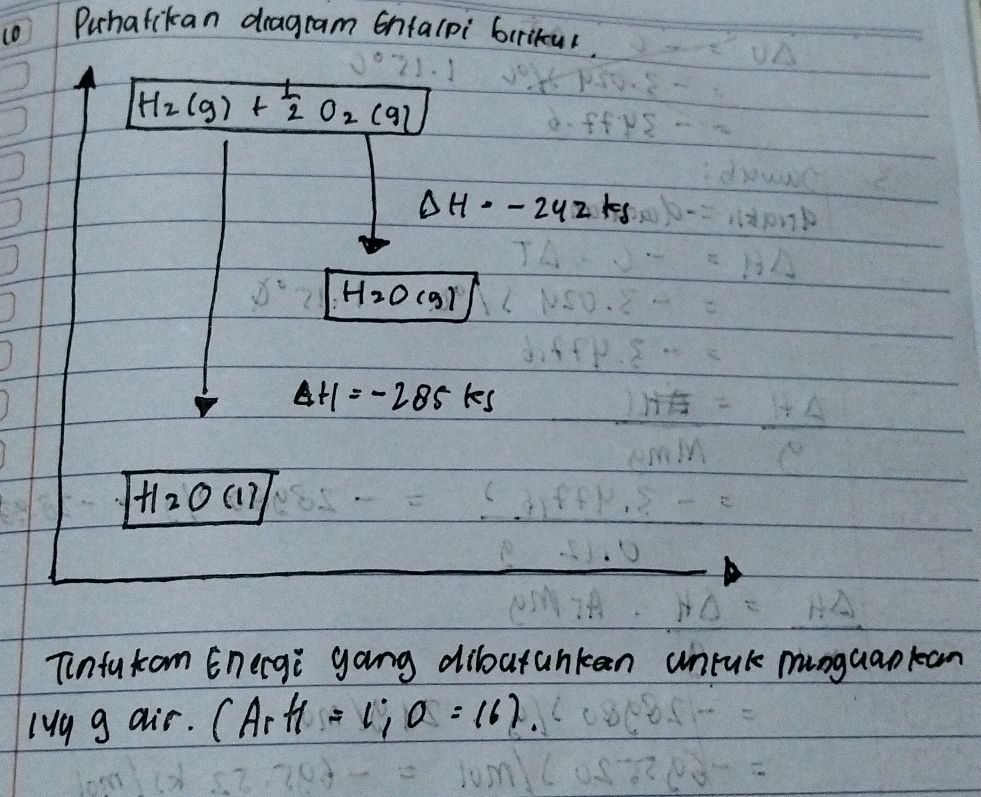 10) Perhatikan diagram Entalpi berikut.
H2 (g) + 1/2 O2 (g)
ΔH = -242 kJ
H2O (g)
ΔH = -285 kJ
H2O (l)
Tentukan Energi yang dibutuhkan untuk menguapkan
144 g air. (Ar H = 1; O = 16).